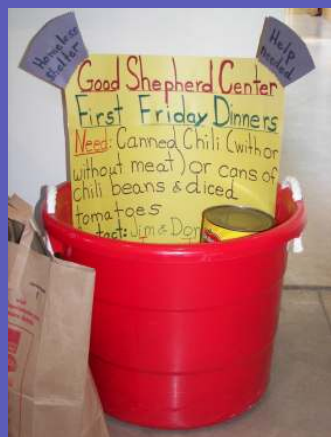 Homeless
Shelter
Help
needed
Good Shepherd Center
First Friday Dinners
Need: Canned Chili (with or
without meat) or cans of
chili beans & diced
tomatoes
Jim & Don